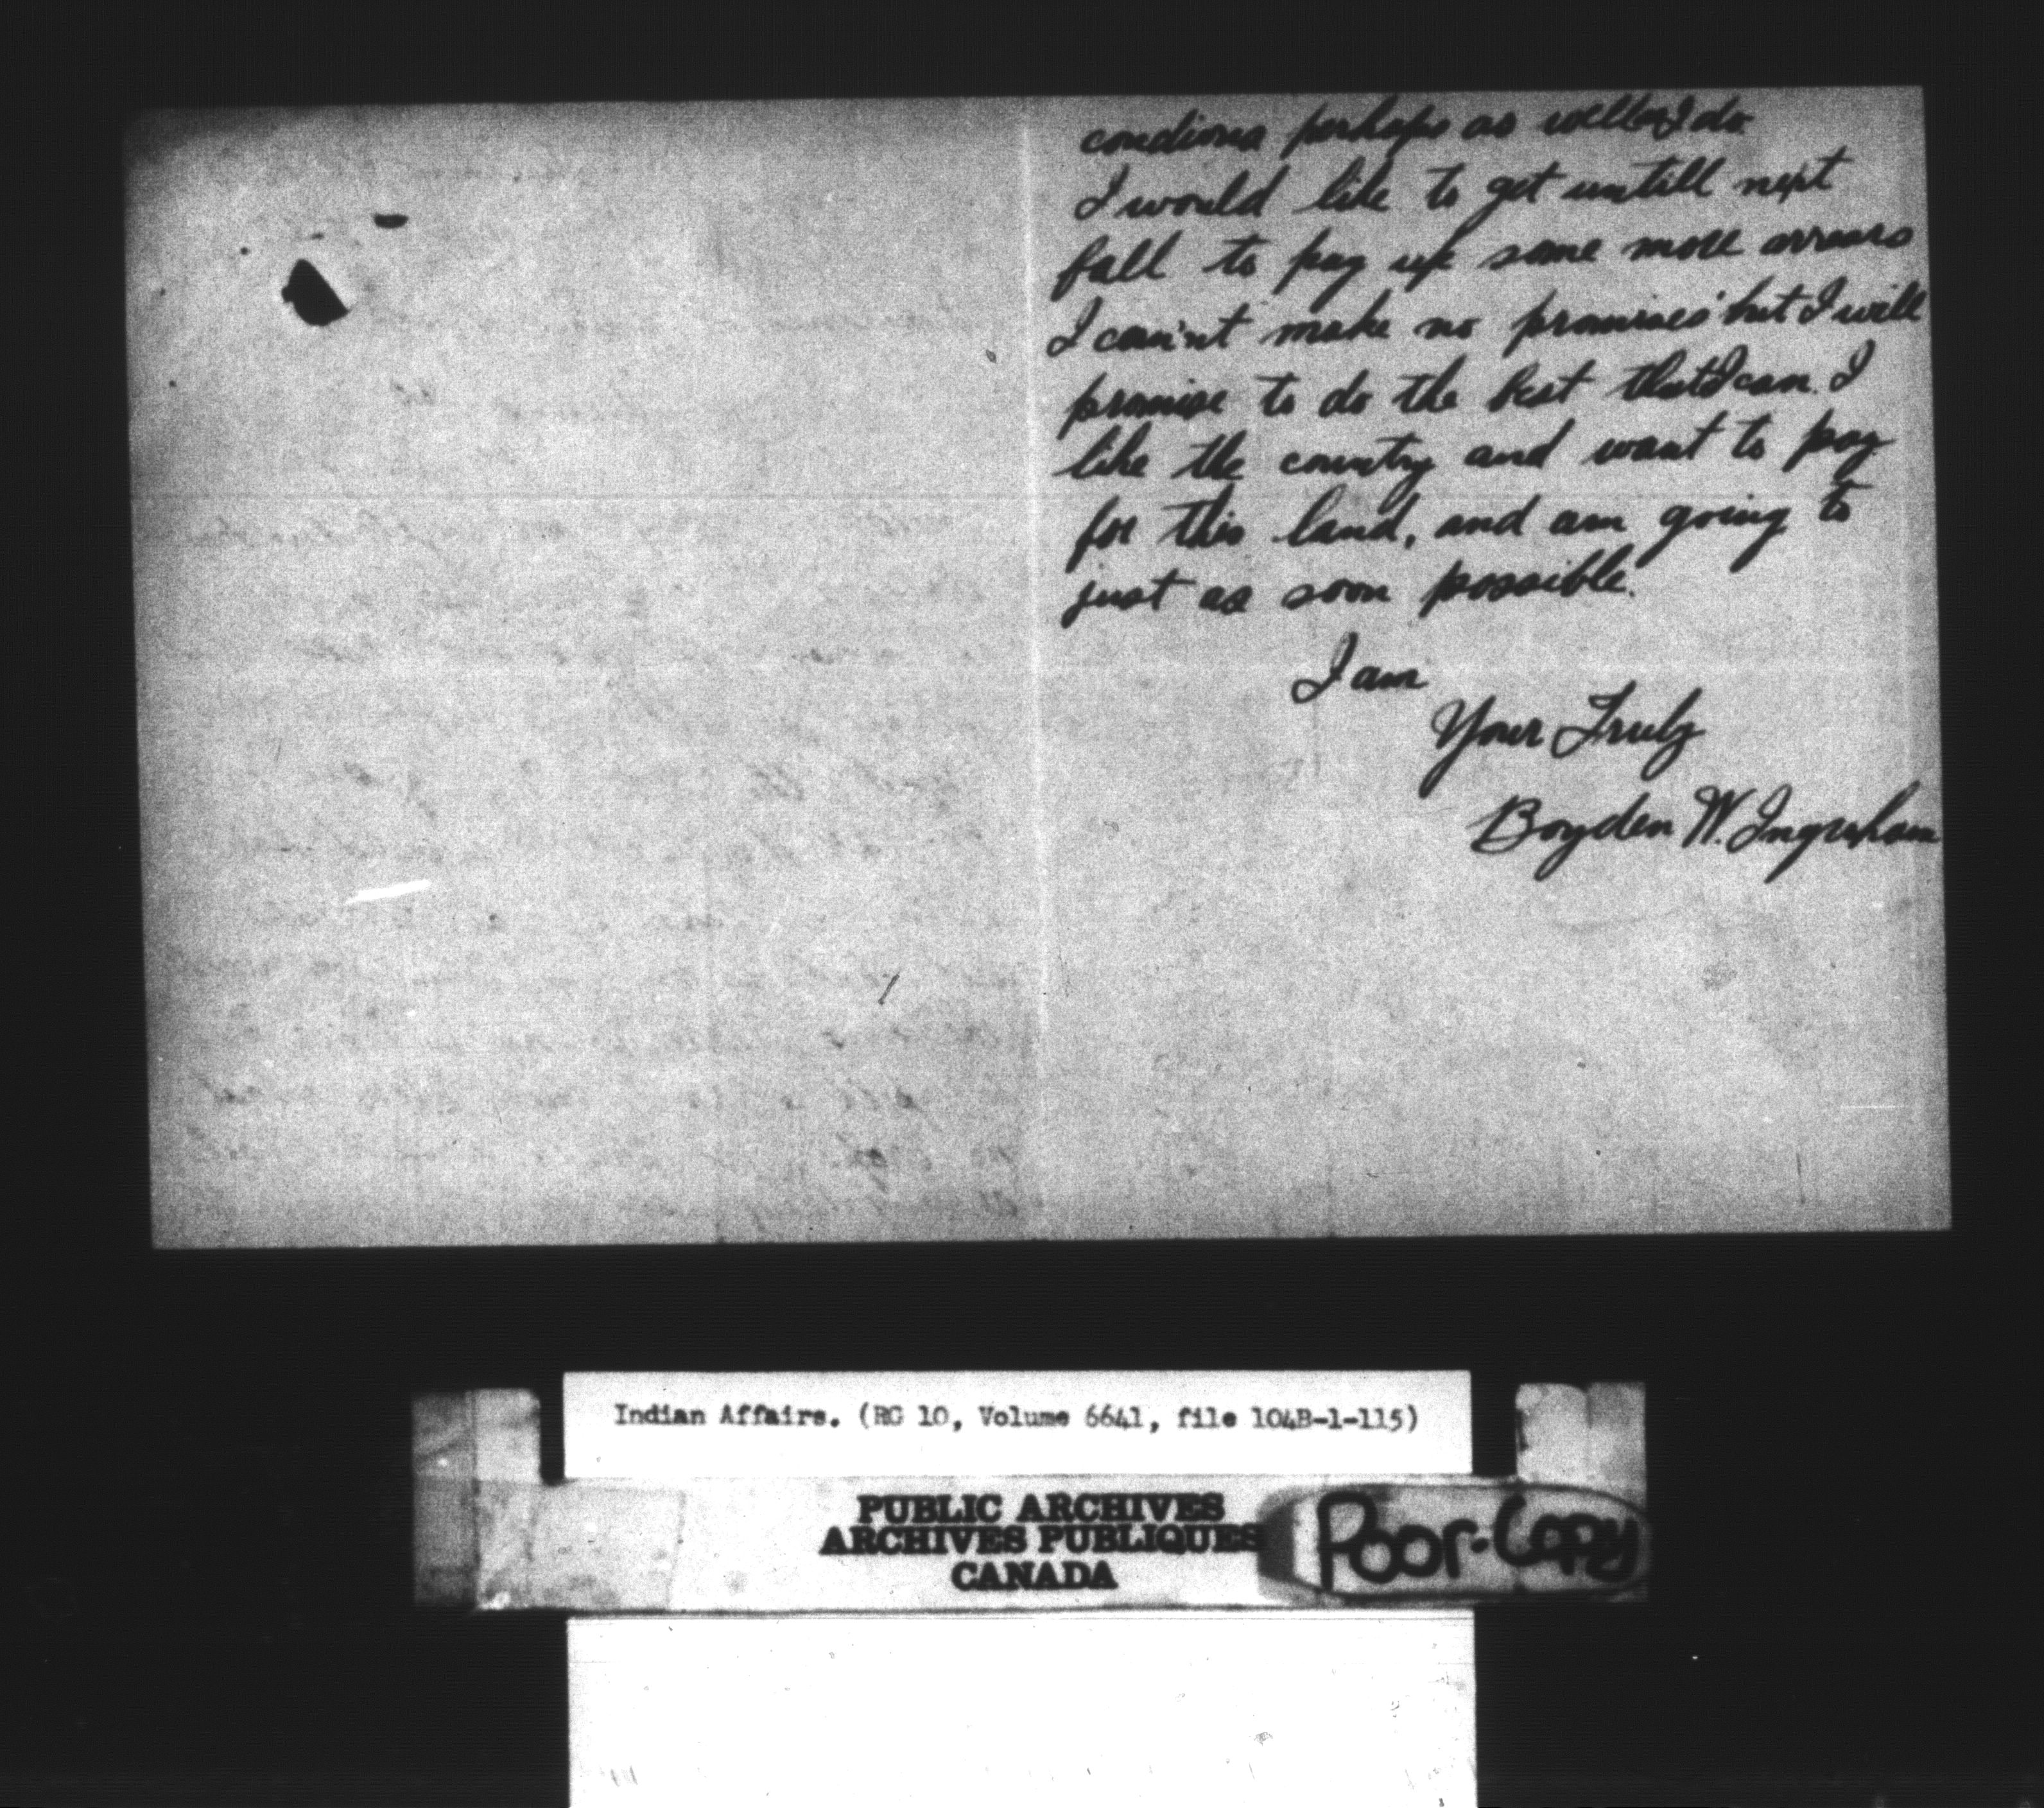 condions perhaps as well as I do.
I would like to get untill next
fall to pay up some more arrears
I cain't make no promises but I will
promise to do the best that I can. I
like the country and want to pay
for this land, and am going to
just as soon possible.
I am
Your Truly
Boyden W. Ingraham
Indian Affairs. (RG 10, Volume 6641, file 104B-1-115)
PUBLIC ARCHIVES
ARCHIVES PUBLIQUES
CANADA
Poor-Copy